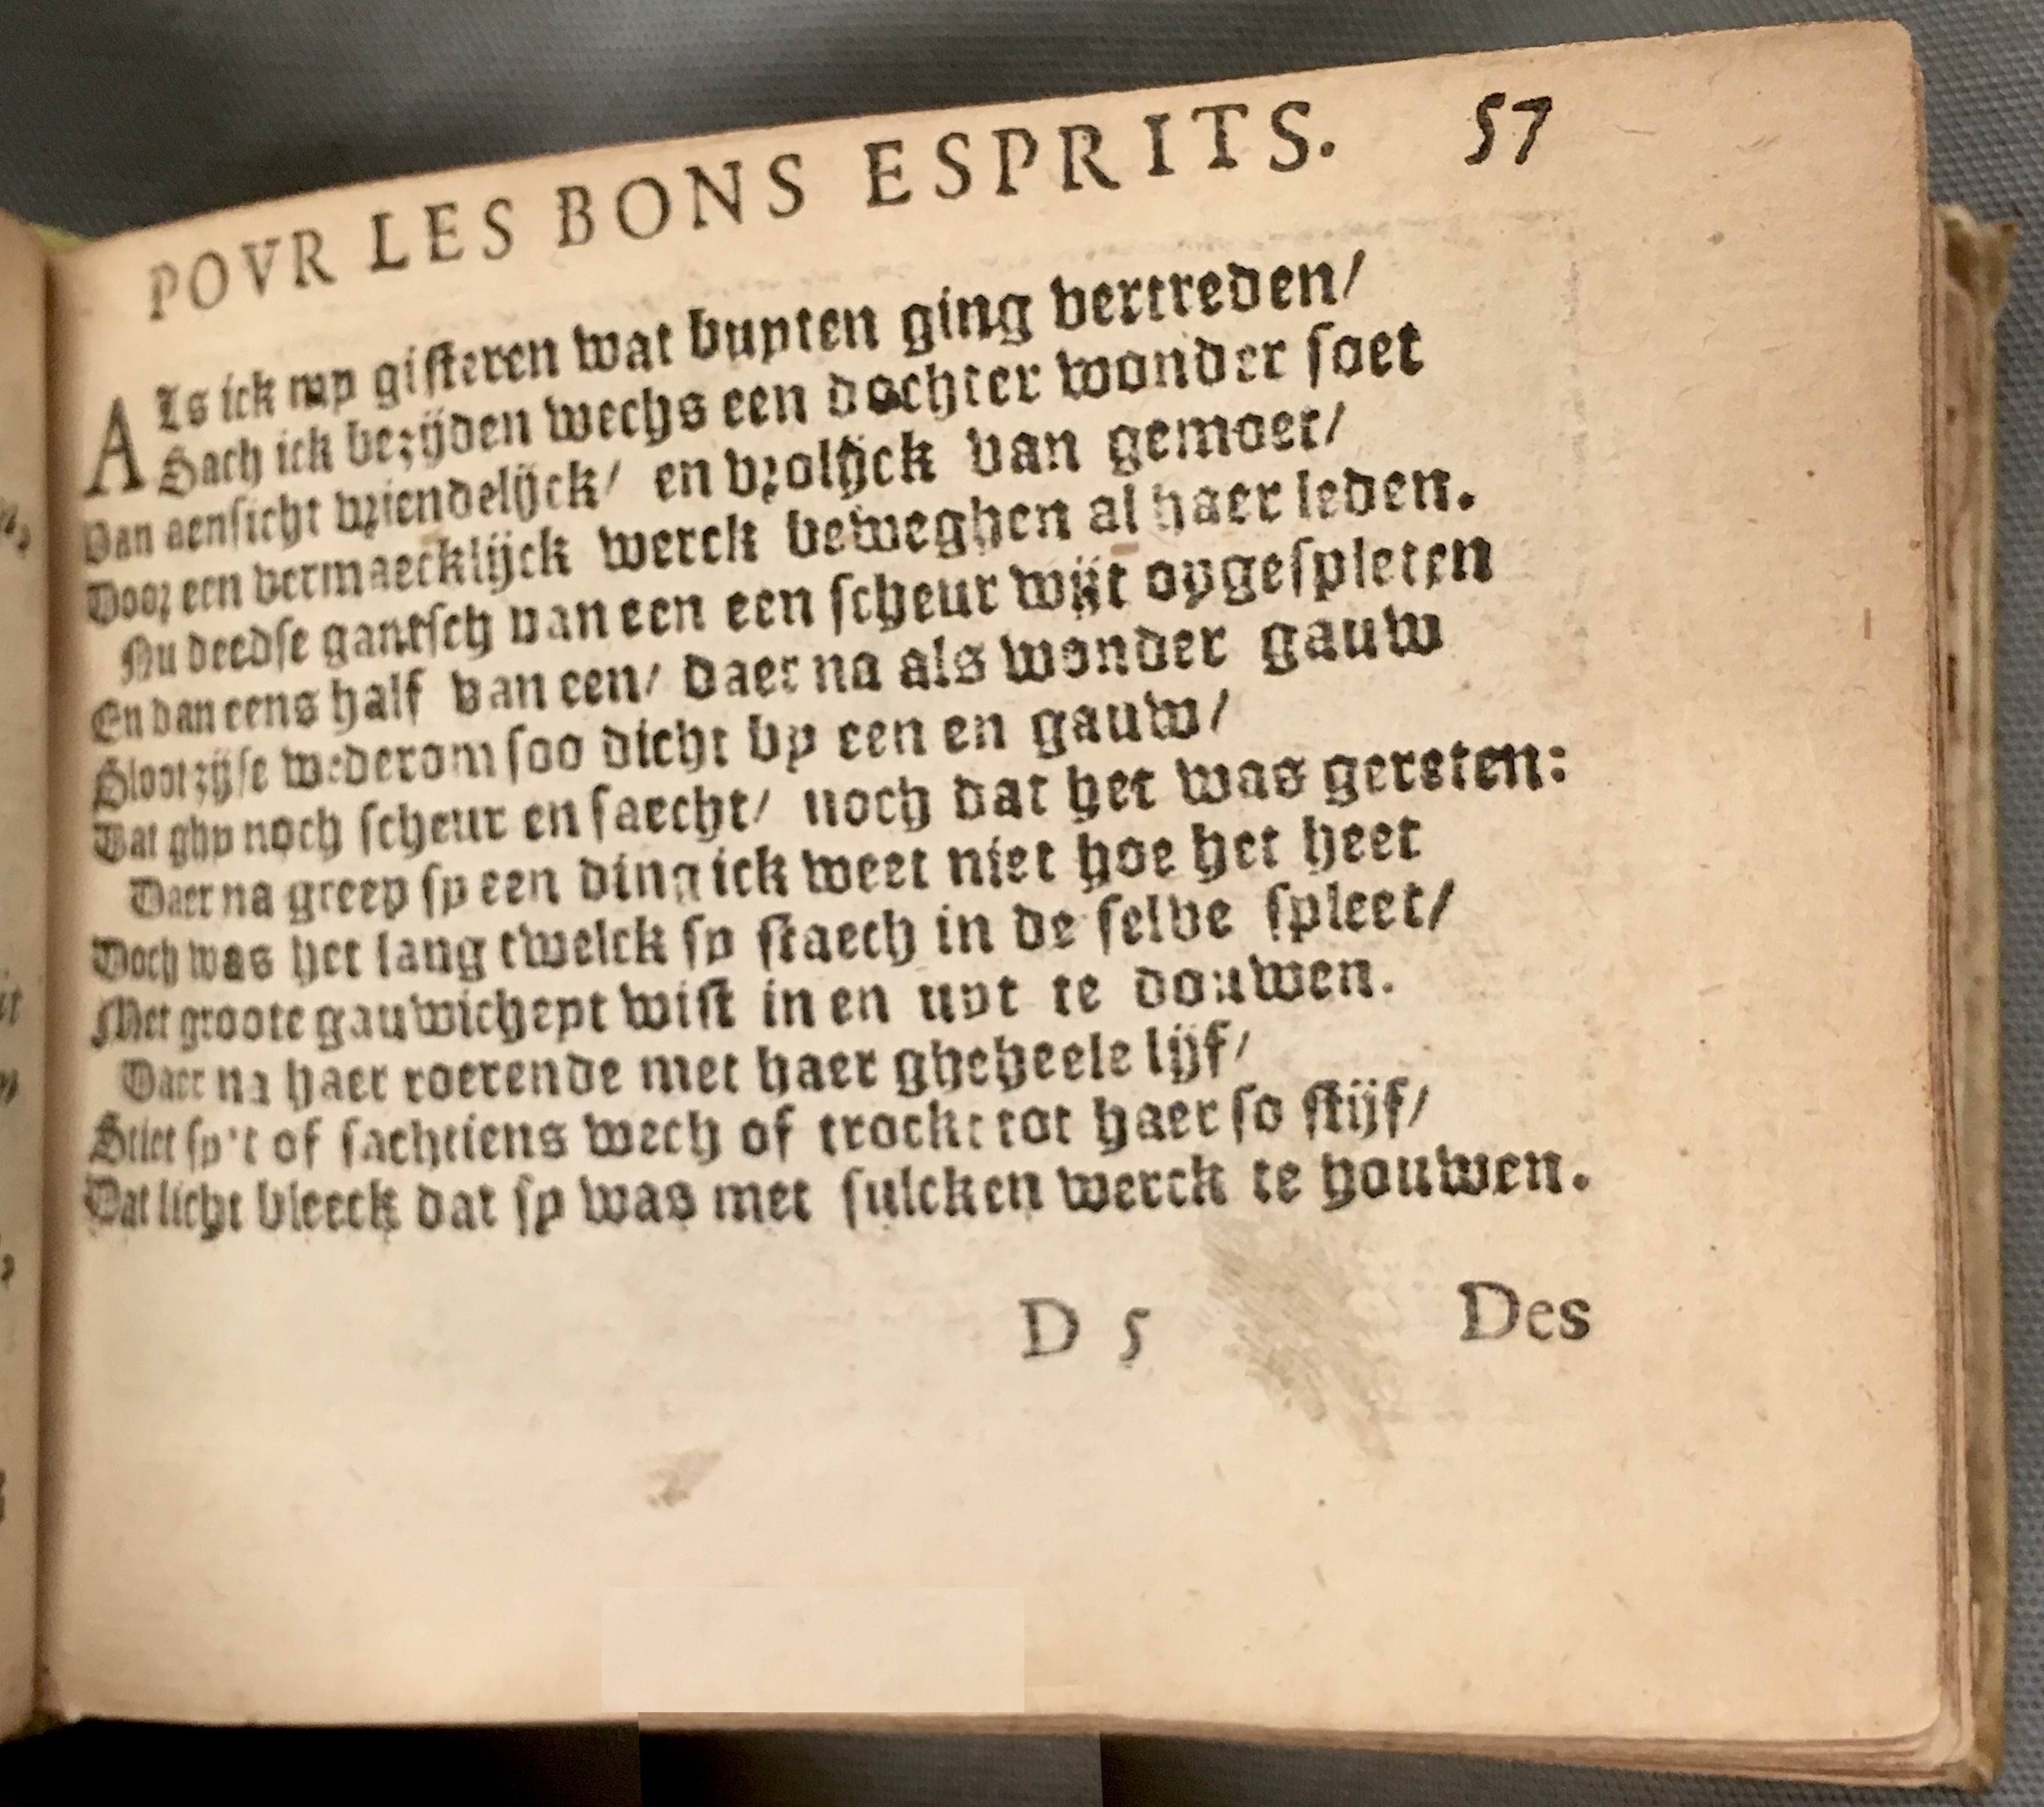 POVR LES BONS ESPRITS. 57
ALs ick my gisteren wat buyten ging vertreden/
Sach ick bezijden wechs een dochter wonder soet
Van aensicht vriendelijck/ en vrolijck van gemoet/
Door een vermaecklijck werck beweghen al haer leden.
Nu deedse gantsch van een een scheur wijt opgespleten
En dan eens half van een/ daer na als wonder gauw
Sloot zijse wederom soo dicht op een en gauw/
Dat ghy noch scheur en saecht/ noch dat het was gereten:
Daer na greep sy een ding ick weet niet hoe het heet
Doch was het lang twelck sy staech in de selve spleet/
Met groote gauwicheyt wist in en uyt te douwen.
Daer na haer roerende met haer gheheele lijf/
Stiet sy't of sachtiens wech of trockt tot haer so stijf/
Dat licht bleeck dat sy was met sulcken werck te houwen.
D 5 Des